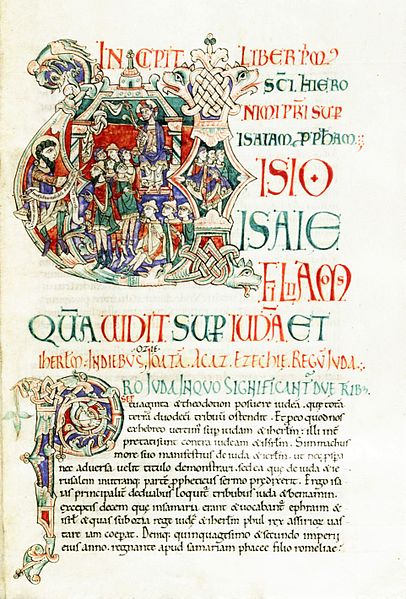 INCIPIT LIBER PMˀ
SCI HIERO
NIMI PRI SUP
ISAIAM PPHAM
ISIO
ISAIE
FILII AMOS
QUA UIDIT SUP IUDA ET
OZIE
IHERLM · IN DIEBUS IOATA · ACAZ · EZECHIE · REGU IUDA
PRO IUDA IN QUO SIGNIFICANT DUE TRIB;
tuaginta & theodotion posuere iudea. que totā
terrā duodecī tribuū ostendit. Et p eo quod nos
ex hebreo uertim sup iudam & ihrlm: illi int
pretati sunt contra iudeam & ihrlm. Simmachus
more suo manifestius de iuda & ierlm. ut nec ipsa
nec adversa uelit titulo demonstrari. sed ea que de iuda & ie
rusalem in utranq; partē ppheticus sermo predixerit. Ergo isa
ias principalit de duabus loquit tribubus iuda & beniamin.
exceptis decem que in samaria erant & uocabant ephraim &
isrl. & quas sub ozia rege iude & ihrlm phul rex assirior uas
tare iam coeperat. Deniq; quinquagesimo & secundo imperii
eius anno. regnante apud samariam phacee filio romeliae: